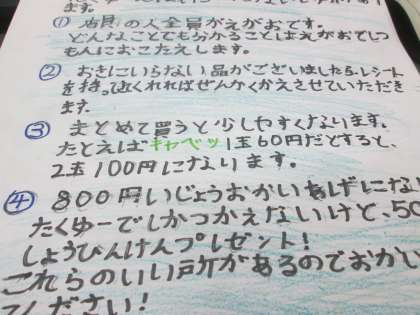 ます。
① 店員の人全員がえがおです。
どんなことでも分かることはえがおでしつ
もんにおこたえします。
② おきにいらない品がございましたら、レシート
を持って近くれればぜんかくかえさせていただき
ます。
③ まとめて買うと少しやすくなります。
たとえばキャベツ1玉60円だとすると、
2玉100円になります。
④ 800円いじょうおかいあげにな
たくゆーでしかつかえないけど、50
しょうひんけんプレゼント!
これらのいい所があるのでおかい
てください!